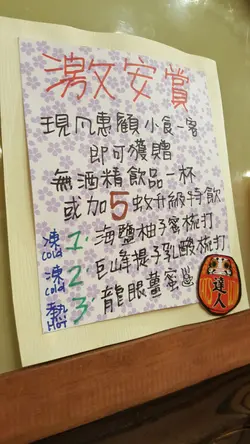 激安賞
現凡惠顧小食一客
即可獲贈
無酒精飲品一杯
或加5蚊升級特飲
凍 Cold 1. 海鹽柚子蜜梳打
凍 Cold 2. 巨峰提子乳酸梳打
熱 Hot 3. 龍眼薑蜜
達人